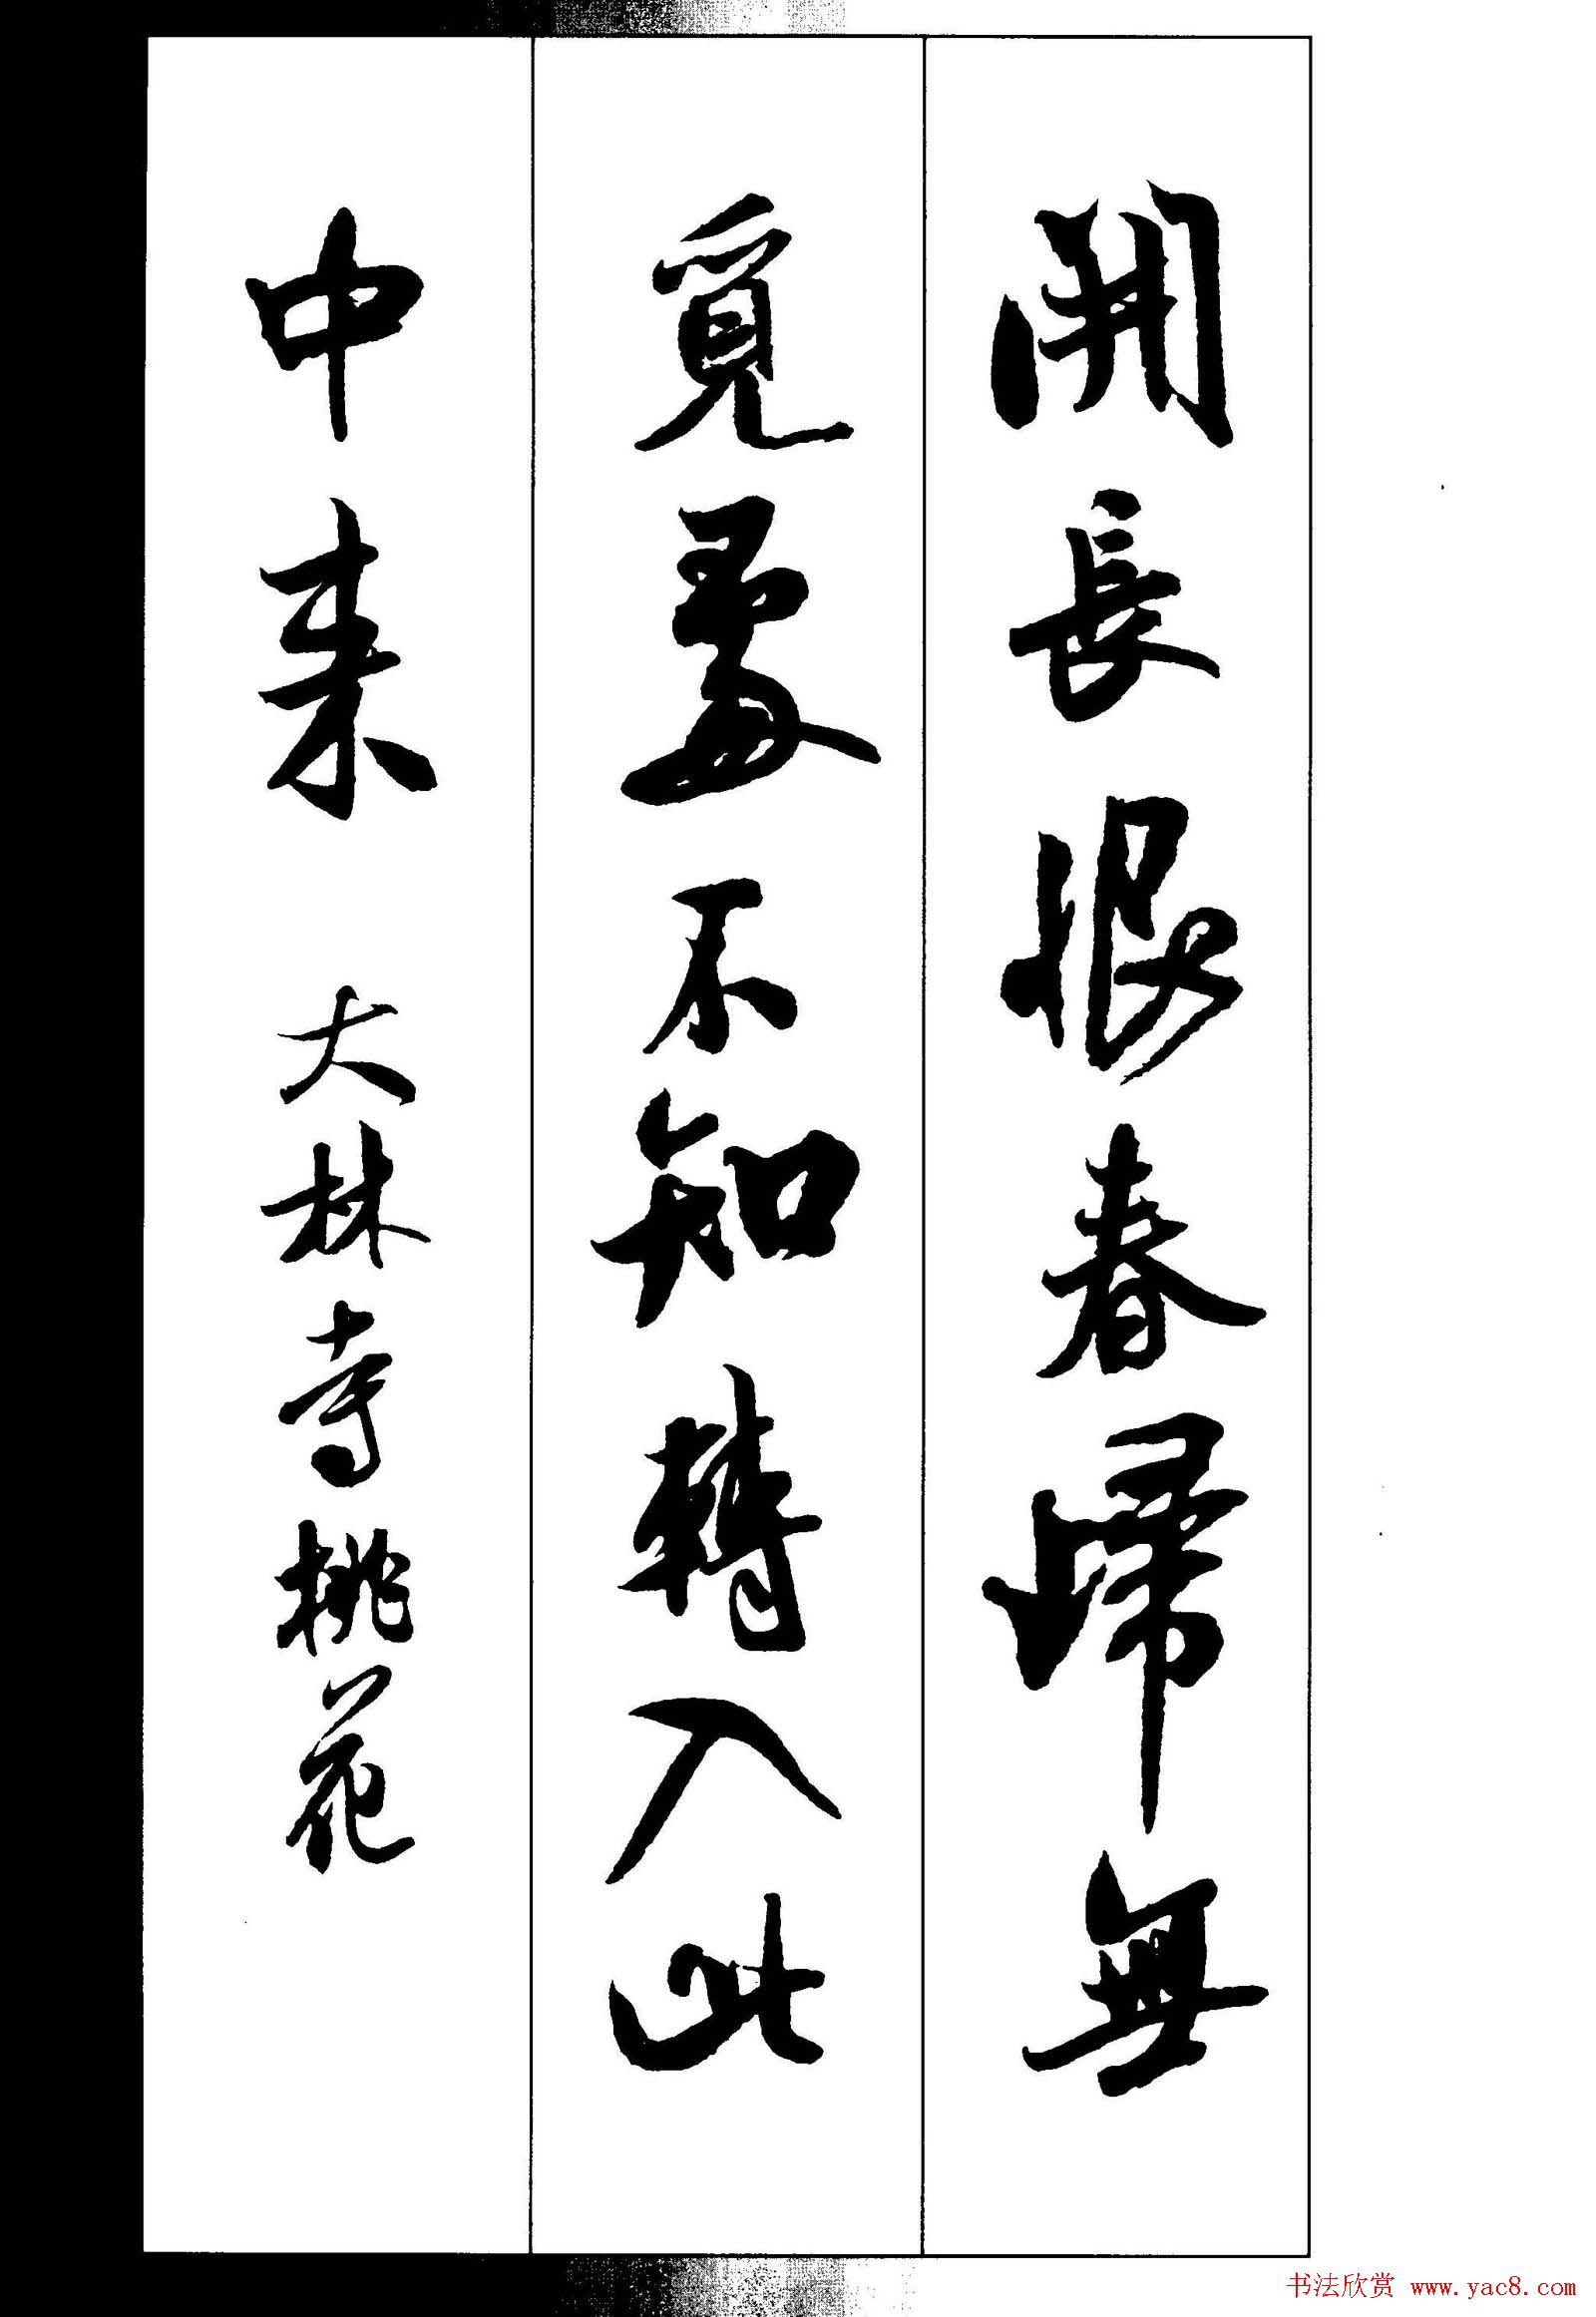 開長恨春歸無
覓處不知轉入此
中来 大林寺桃花
书法欣赏 www.yac8.com